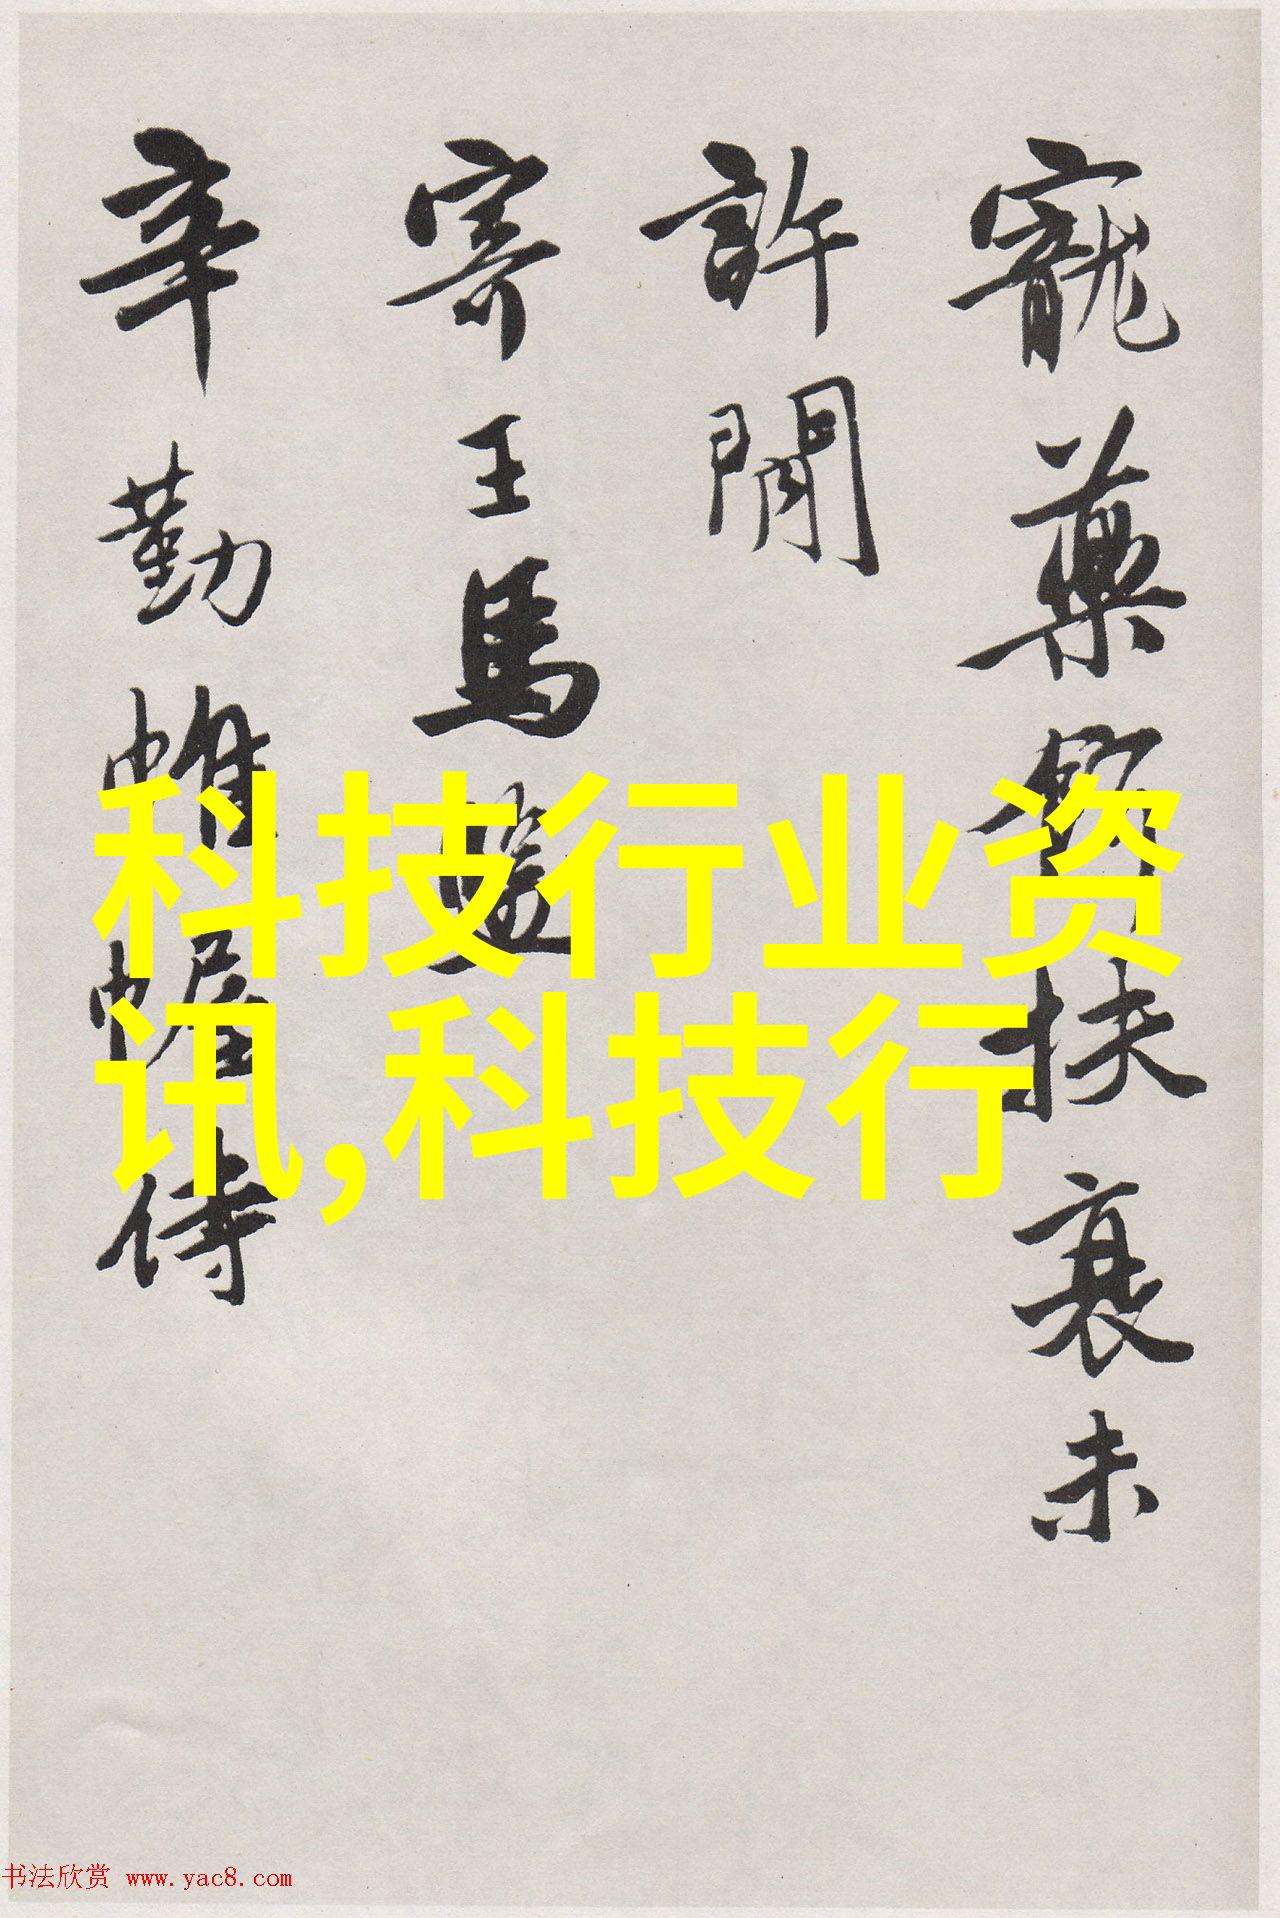 寵藥餌扶衰未
許閒
寄王馬
辛勤帷幄侍
科技行业资
讯,科技行
书法欣赏 www.yac8.com